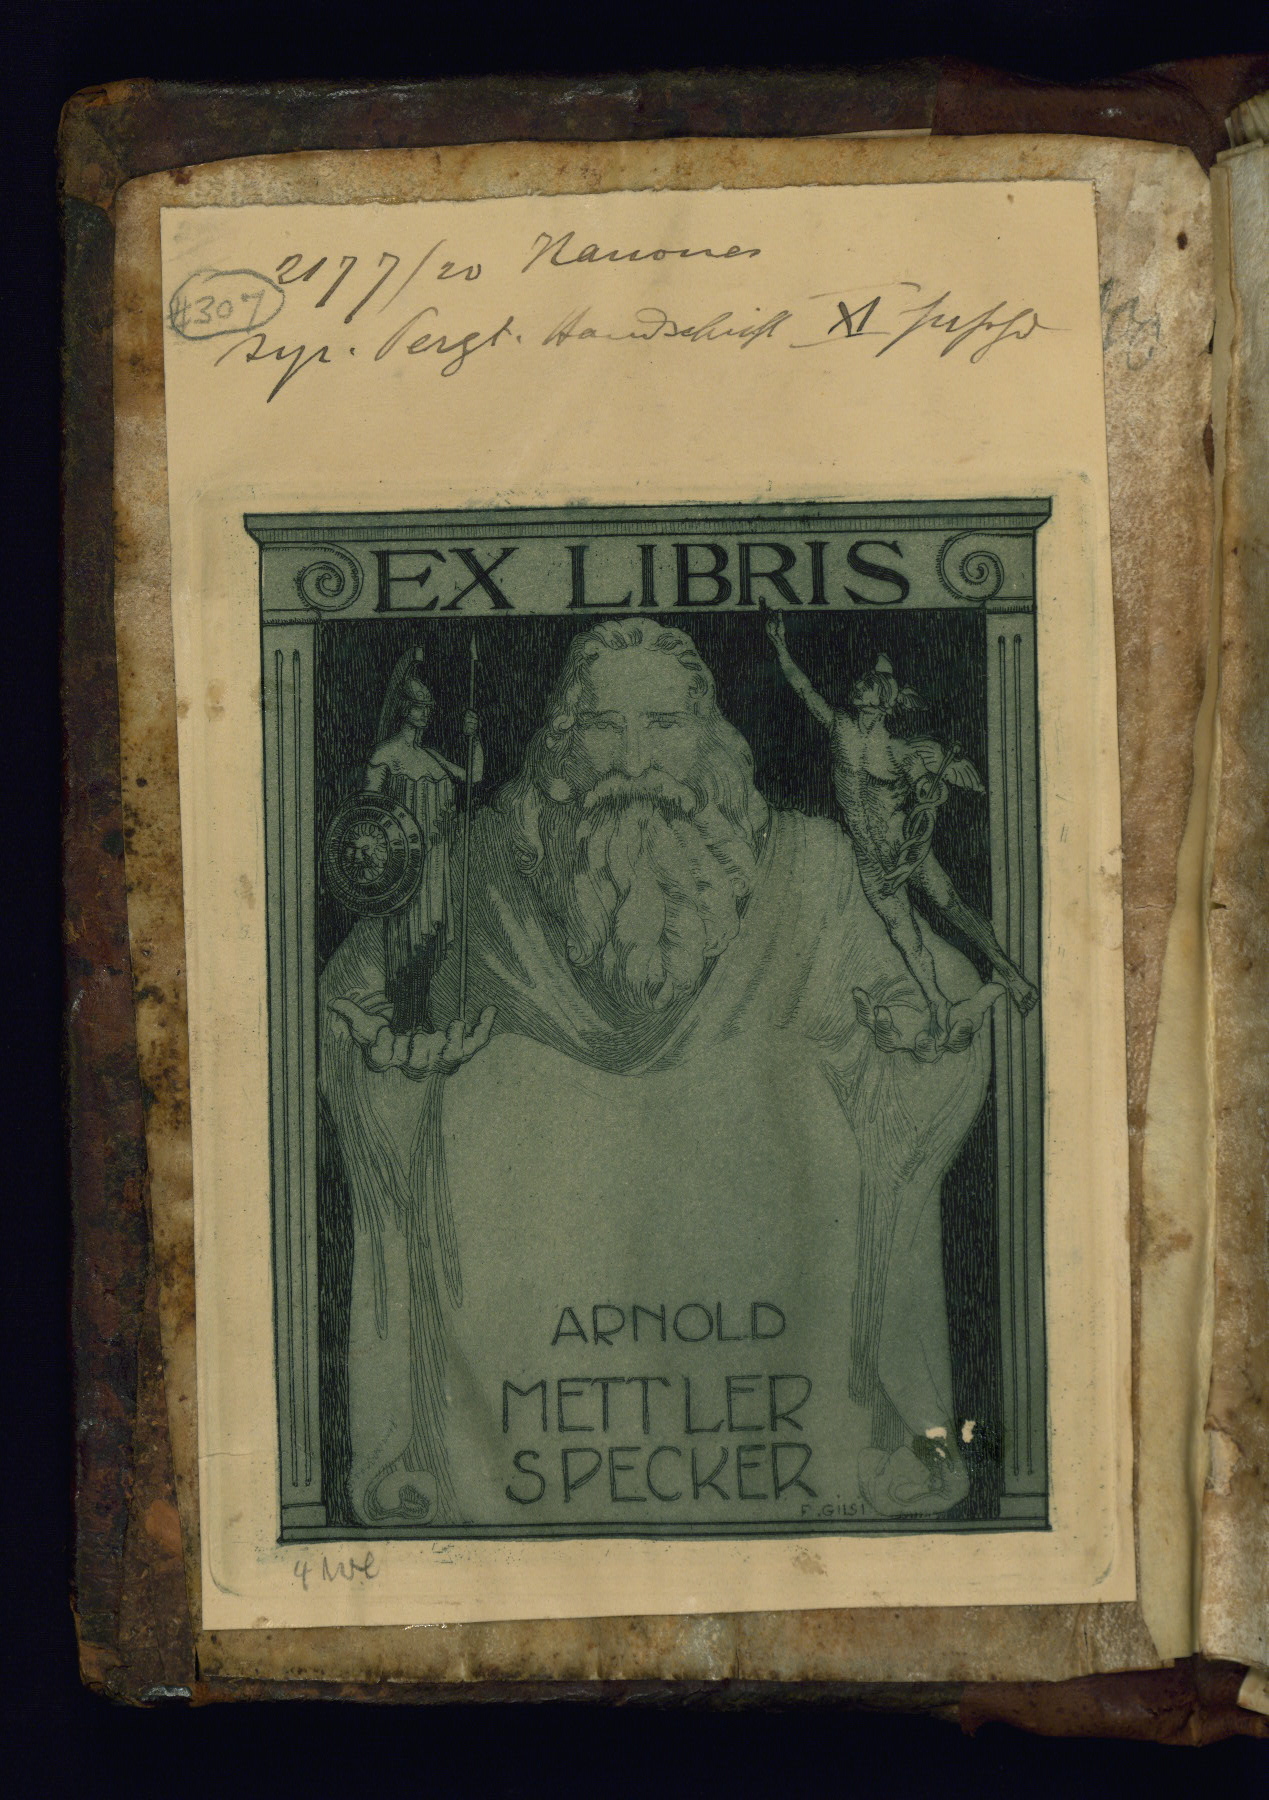 2177/20 Kanones
#307
syr. Pergt. Handschrift XI
EX LIBRIS
ARNOLD
METTLER
SPECKER
F. GILSI